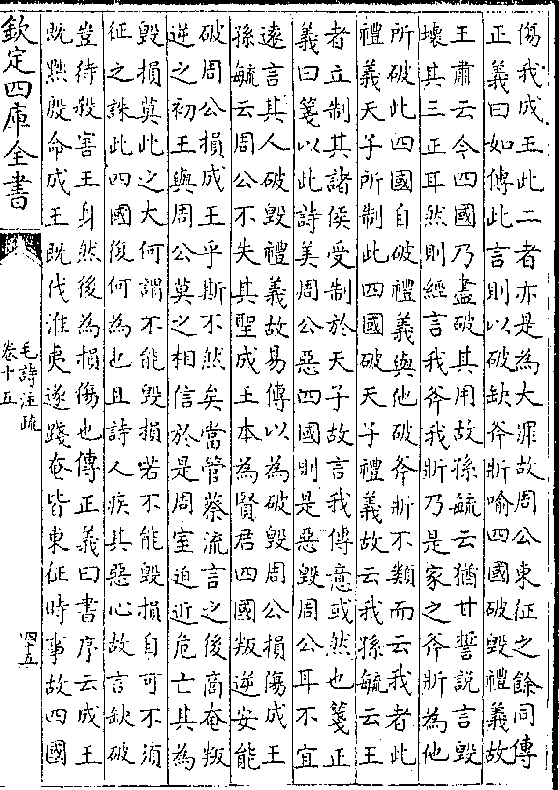 傷我成王此二者亦是為大罪故周公東征之餘同傳
正義曰如傳此言則以破缺斧斨喻四國破毀禮義故
王肅云今四國乃盡破其用故孫毓云猶甘誓說言毀
壞其三正耳然則經言我斧我斨乃是家之斧斨為他
所破此四國自破禮義與他破斧斨不類而云我者此
禮義天子所制此四國破天子禮義故云我孫毓云王
者立制其諸侯受制於天子故言我傳意或然也箋正
義曰箋以此詩美周公惡四國則是惡毀周公耳不宜
遠言其人破毀禮義故易傳以為破毀周公損傷成王
孫毓云周公不失其聖成王本為賢君四國叛逆安能
破周公損成王乎斯不然矣當管蔡流言之後商奄叛
逆之初王與周公莫之相信於是周室迫近危亡其為
毀損莫此之大何謂不能毀損若不能毀損自可不須
征之誅此四國復何為也且詩人疾其惡心故言缺破
豈待殺害王身然後為損傷也傳正義曰書序云成王
既黜殷命成王既伐淮夷遂踐奄皆東征時事故四國
欽定四庫全書
毛詩注疏
卷十五
四十五